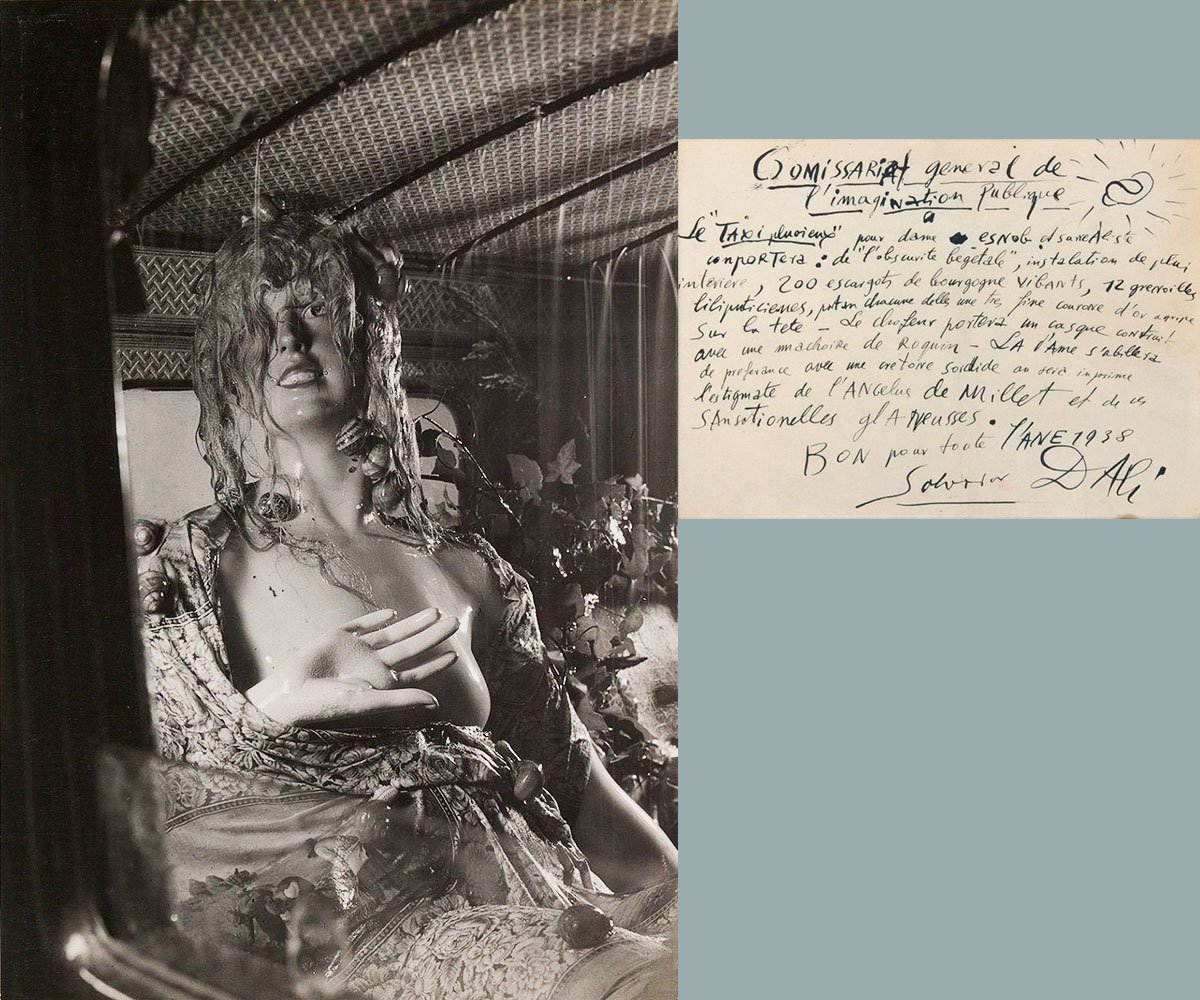 Comissariat general de
l'imagination Publique
Le "TAXi pluvieux" pour dame esnob et surreAliste
comporTera : de "l'obscurite begetale", instalation de plui
interiere, 200 escargots de bourgogne vibants, 12 grenoilles
liliputicienes, portan chacune delles une tres fine couronne d'or
sur la tete – Le chofeur portera un casque construit
avec une machoire de Roquin – LA dAme s'abillera
de preferance avec une cretone sordide ou sera imprime
l'estigmate de l'ANGelus de Millet et de ces
SAnsationelles glANeusses.
BON pour toute l'ANE 1938
Salvador DAli